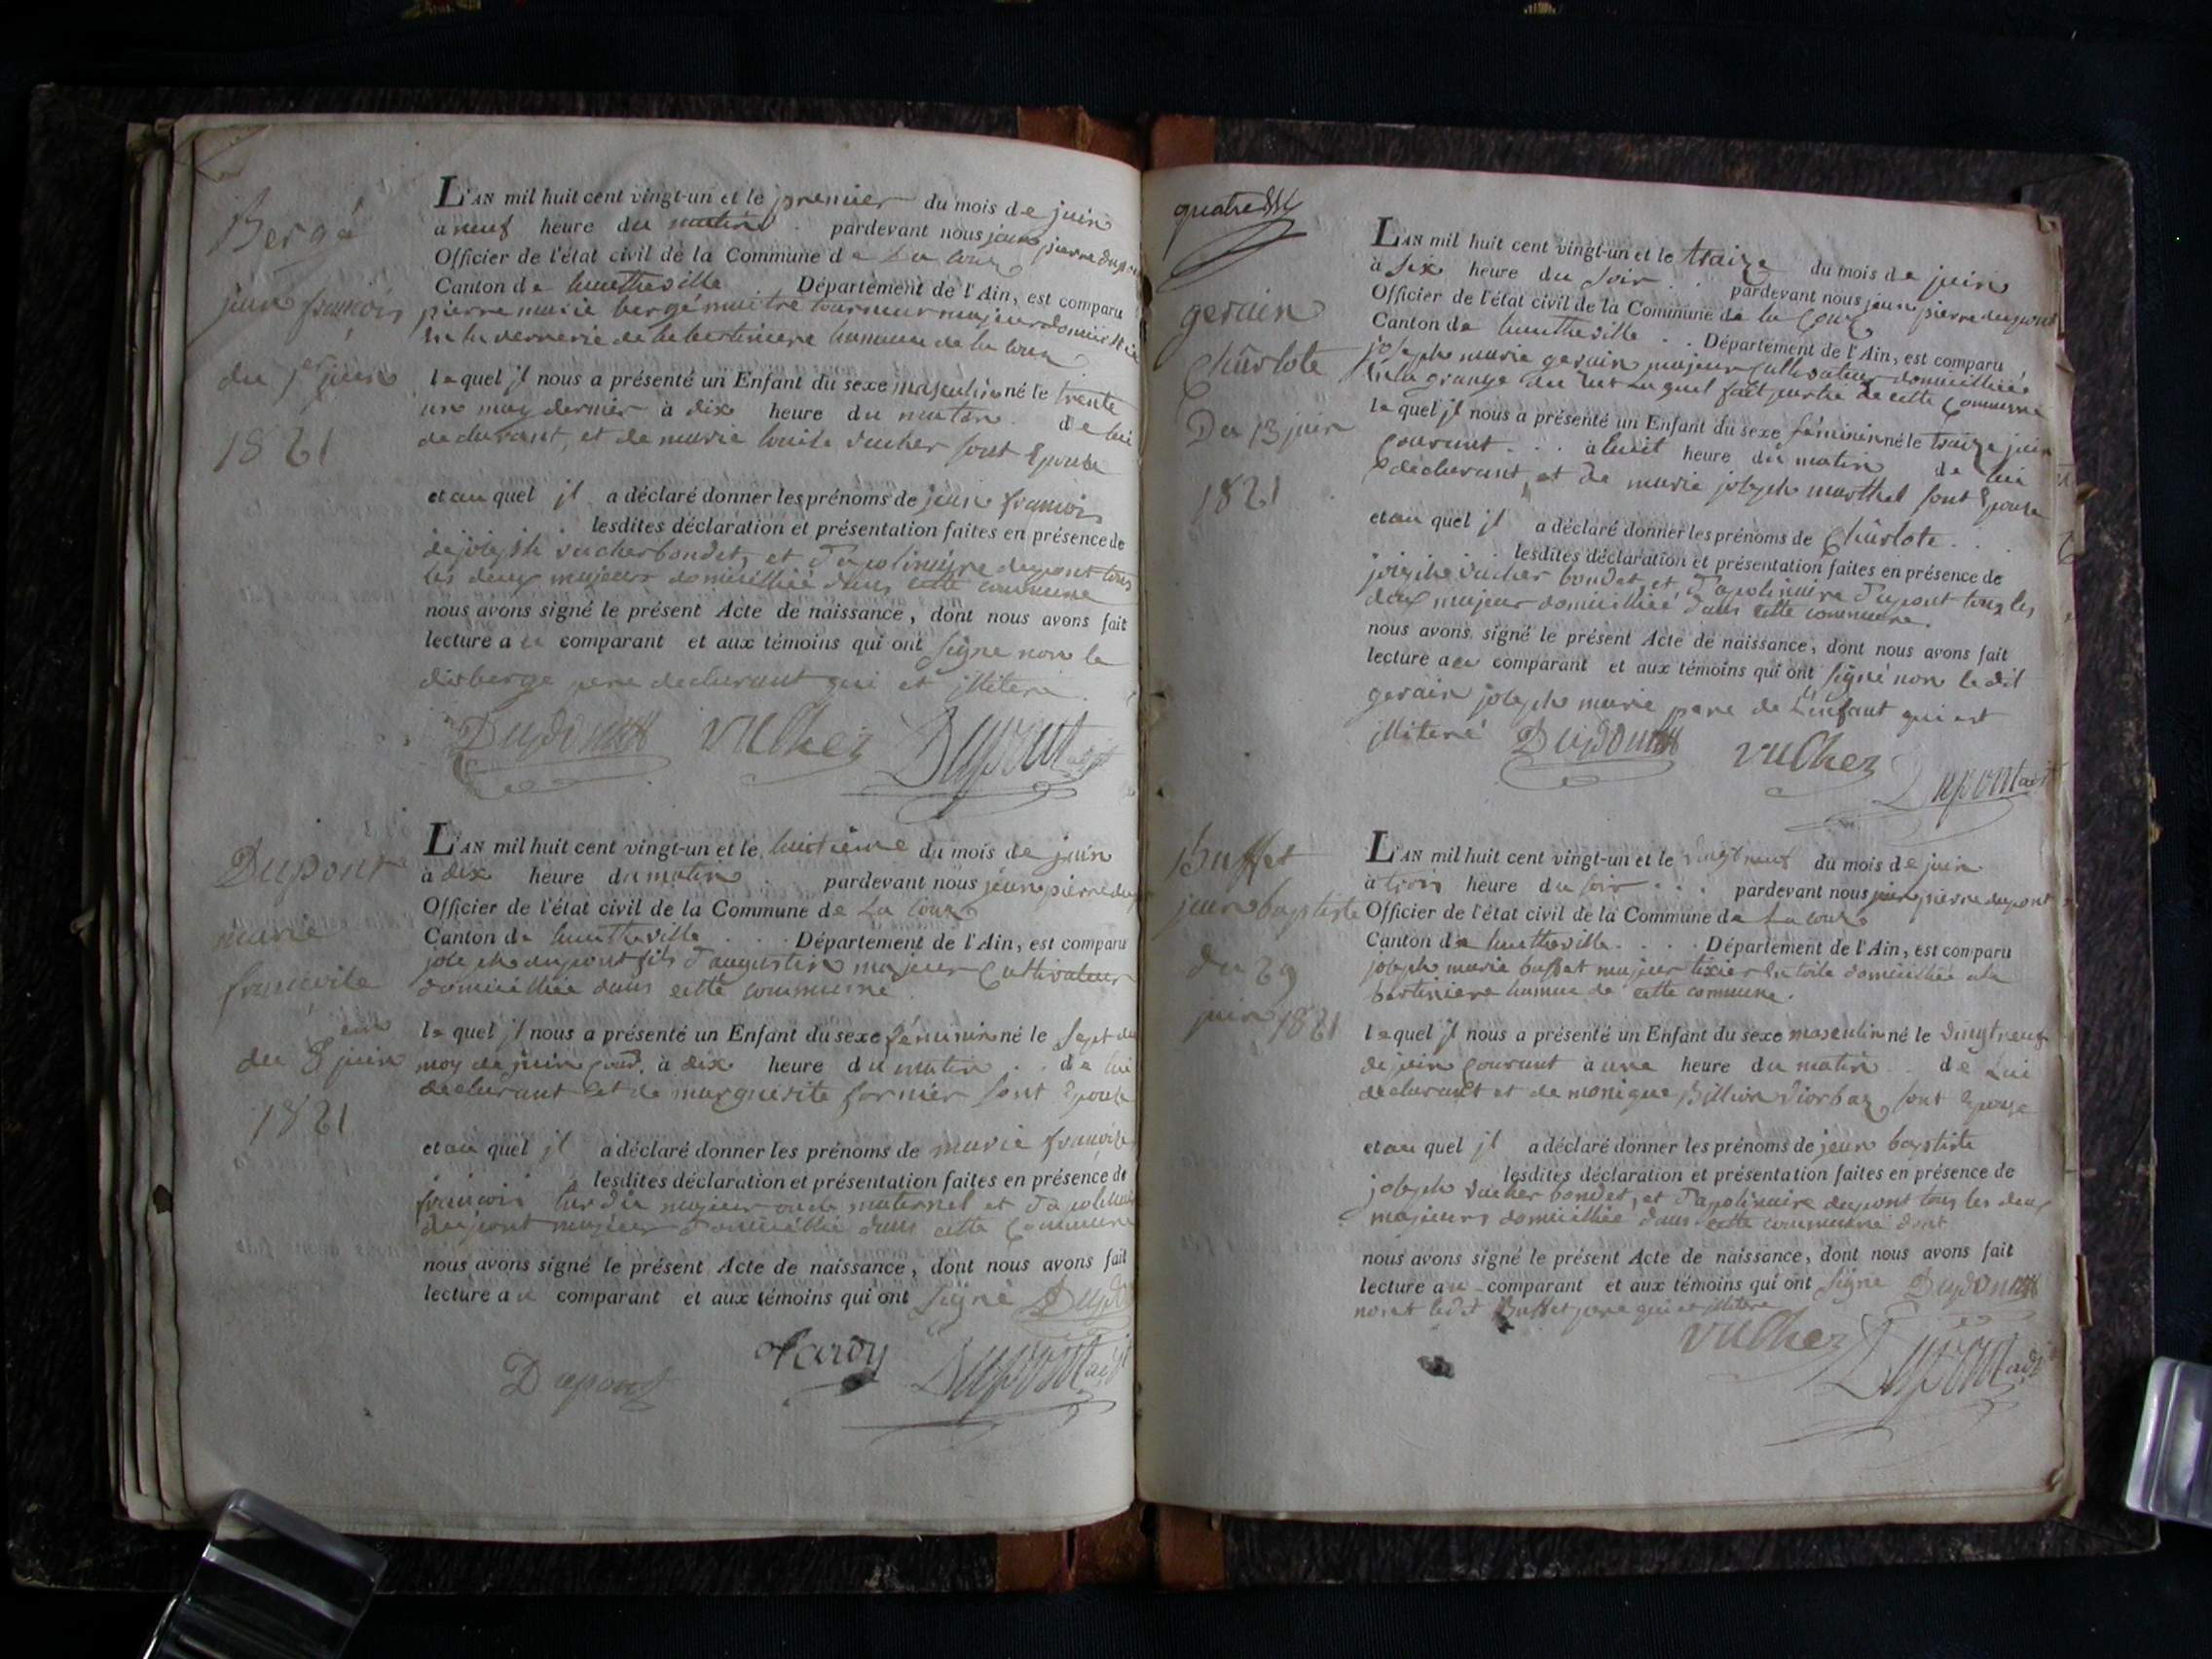 Bergé
jean françois
du 1er juin
1821
L'AN mil huit cent vingt-un et le premier du mois de juin
a neuf heure du matin pardevant nous jean pierre dupont
Officier de l'état civil de la Commune de La Coux
Canton de hauteville Département de l'Ain, est comparu
pierre marie bergé maitre tourneur majeur domicilié
en la vernerie de la bertiniere hameau de la Coux
lequel il nous a présenté un Enfant du sexe masculin né le trente
un may dernier à dix heure du matin de lui
declarant, et de marie louise vucher sont Epouse
et au quel il a déclaré donner les prénoms de jean françois
lesdites déclaration et présentation faites en présence de
de joseph vucher bondet, et d'apolinaire dupont tous
les deux majeurs domicillié dans cette commune
nous avons signé le présent Acte de naissance, dont nous avons fait
lecture a ce comparant et aux témoins qui ont signé non le
dit berge pere declarant qui et illiteré
Dupont vucher Dupont adjt
Dupont
marie
françoise
du 8 juin
1821
L'AN mil huit cent vingt-un et le huitieme du mois de juin
à dix heure du matin pardevant nous jean pierre dup
Officier de l'état civil de la Commune de La Coux
Canton de hauteville Département de l'Ain, est comparu
joseph dupont fils d'augustin majeur Cultivateur
domicilliée dans cette commune
lequel il nous a présenté un Enfant du sexe féminin né le sept du
moy de juin à dix heure du matin de lui
declarant et de marguerite sont Epouse
et au quel il a déclaré donner les prénoms de marie françoise
lesdites déclaration et présentation faites en présence de
françois majeur oncle maternel et d'apolinaire
dupont majeur domicillié dans cette Commune
nous avons signé le présent Acte de naissance, dont nous avons fait
lecture a ce comparant et aux témoins qui ont signé Dupo
Dupont Dupont adjt
quatre
gerain
Charlote
Du 13 juin
1821
L'AN mil huit cent vingt-un et le traize du mois de juin
à six heure du soir pardevant nous jean pierre dupont
Officier de l'état civil de la Commune de la Coux
Canton de hauteville Département de l'Ain, est comparu
joseph marie gerain majeur cultivateur domicilliée
en la grange du laquel fait partie de cette Commune
lequel il nous a présenté un Enfant du sexe féminin né le traize juin
Courant à huit heure du matin de lui
declarant et de marie joseph marthel sont Epouse
et au quel il a déclaré donner les prénoms de Charlote
lesdites déclaration et présentation faites en présence de
joseph vucher bondet et d'apolinaire dupont tous les
deux majeur domicillié dans cette commune.
nous avons signé le présent Acte de naissance, dont nous avons fait
lecture a ce comparant et aux témoins qui ont signé non le dit
gerain joseph marie pere de L'enfant qui est
illiteré Dupont vucher Dupont adjt
Buffet
jean baptiste
du 29
juin 1821
L'AN mil huit cent vingt-un et le vingt neuf du mois de juin
à trois heure du soir pardevant nous jean pierre dupont
Officier de l'état civil de la Commune de La Coux
Canton de hauteville Département de l'Ain, est comparu
joseph marie buffet majeur tixier En toile domicilliée a la
bertiniere hamau de cette commune.
lequel il nous a présenté un Enfant du sexe masculin né le vingt neuf
de juin Courant à une heure du matin de Lui
declarant et de monique Billion sont Epouse
et au quel il a déclaré donner les prénoms de jean baptiste
lesdites déclaration et présentation faites en présence de
joseph vucher bondet, et d'apolinaire dupont tous les deux
majeurs domicillié dans cette commune dont
nous avons signé le présent Acte de naissance, dont nous avons fait
lecture a ce comparant et aux témoins qui ont signe Dupont
non et ledit Buffet pere qui et illitere
vucher Dupont adjt